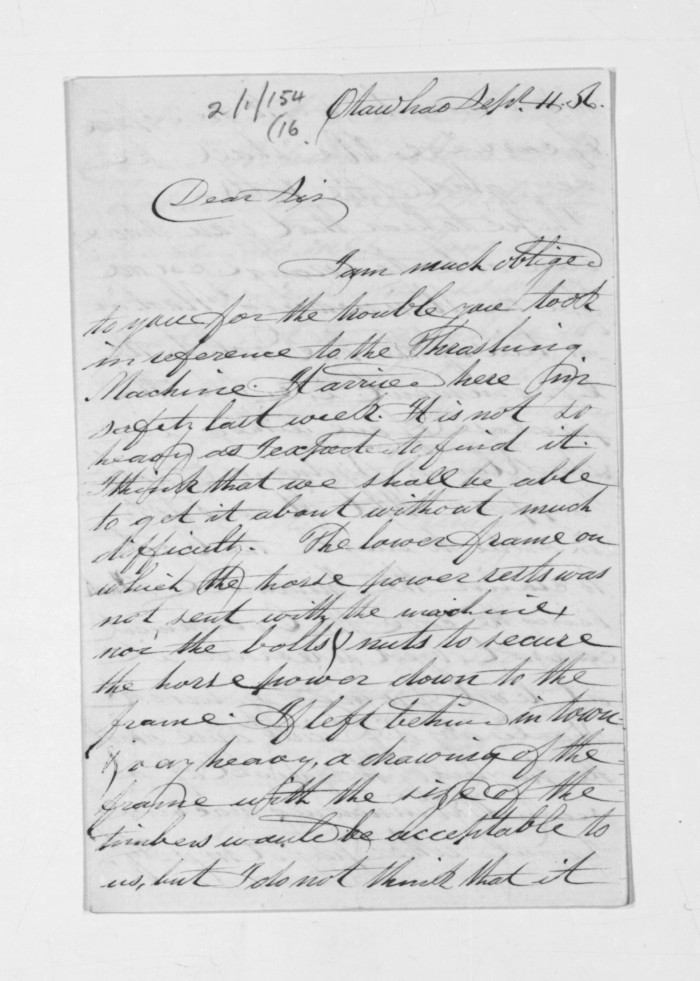 2/1/154
(16.
Otawhao Sept. 11. 56.
Dear Sir
I am much obliged
to you for the trouble you took
in reference to the Thrashing
Machine. It arrived here in
safety last week. It is not so
heavy as I expected to find it.
I think that we shall be able
to get it about without much
difficulty. The lower frame on
which the horse power rests was
not sent with the machine,
nor the bolts & nuts to secure
the horse power down to the
frame. If left behind in town
& very heavy, a drawing of the
frame with the size of the
timbers would be acceptable to
us, but I do not think that it